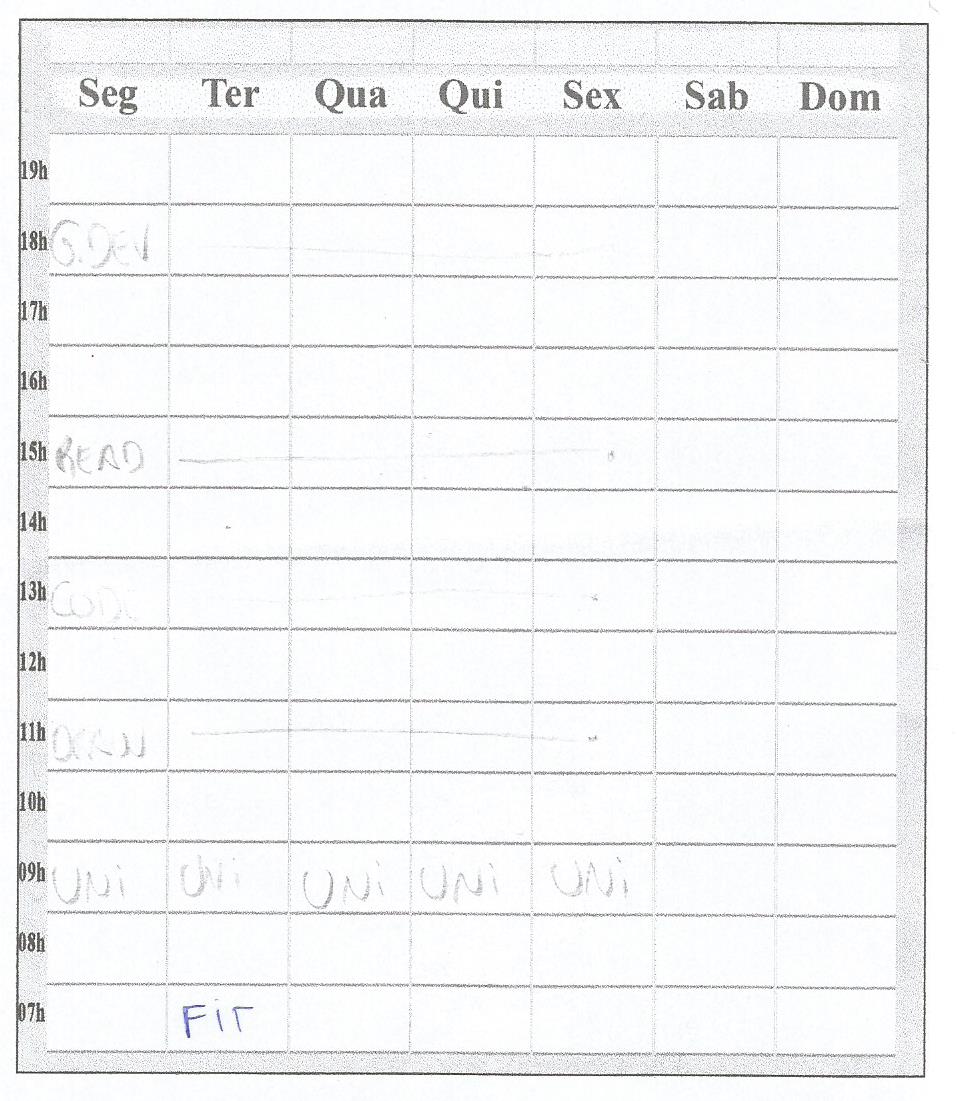 Seg Ter Qua Qui Sex Sab Dom
19h
18h G.DEV
17h
16h
15h READ
14h
13h
12h
11h
10h
09h UNi UNi UNi UNi UNi
08h
07h FiT